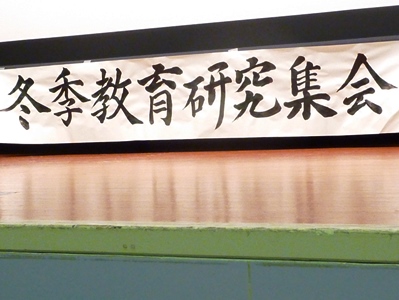 冬季教育研究集会